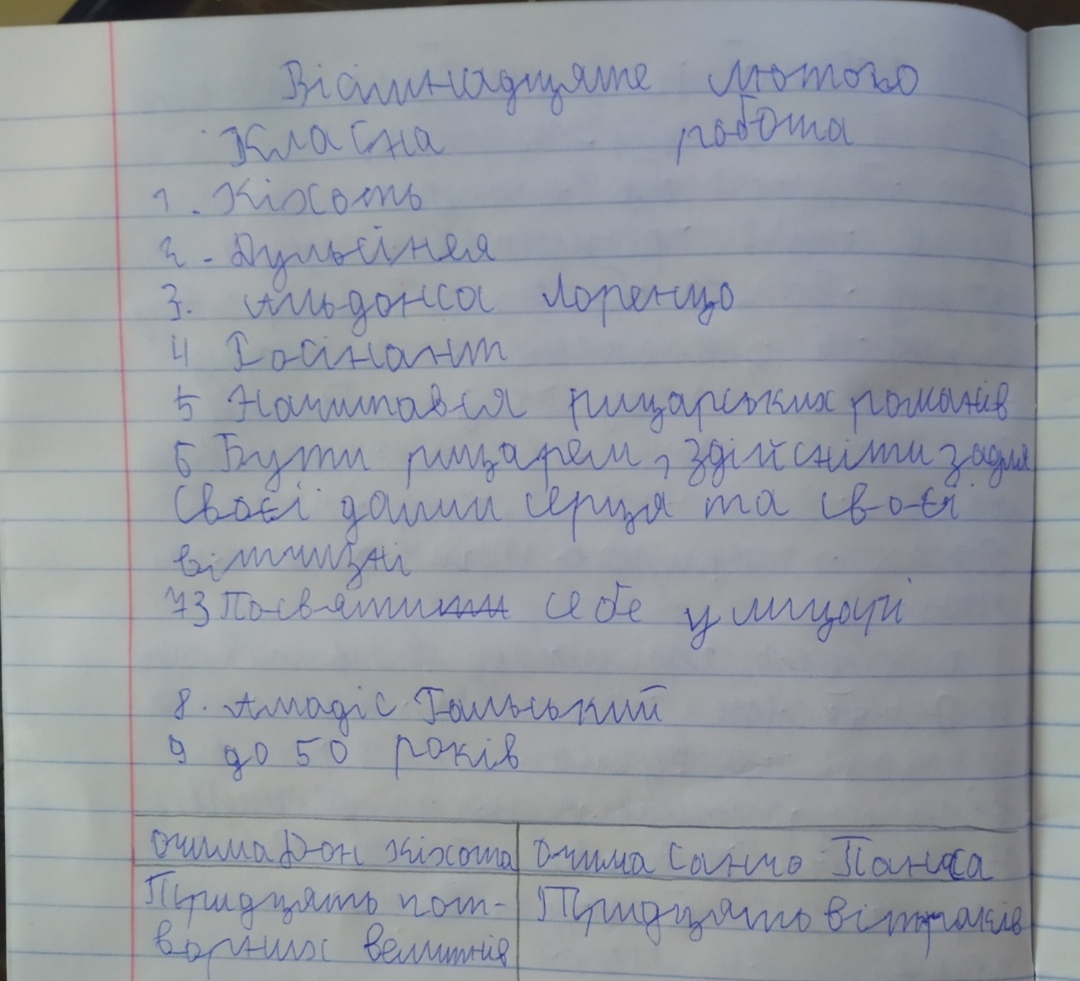 Вісімнадцяте лютого
Класна робота
1. Кіхоть
2. Дульсінея
3. Альдонса Лоренцо
4 Росінант
5 Начитався рицарських романів
6 Бути рицарем, здійсніти задля
своєї дами серця та своєї
вітчизні
73 Посвяти себе у лицарі
8. Амадіс Гальський
9 до 50 років
очима Дон Кіхота очима Санчо Панса
Тридцять пот- Тридцять вітряків
ворних велитнів